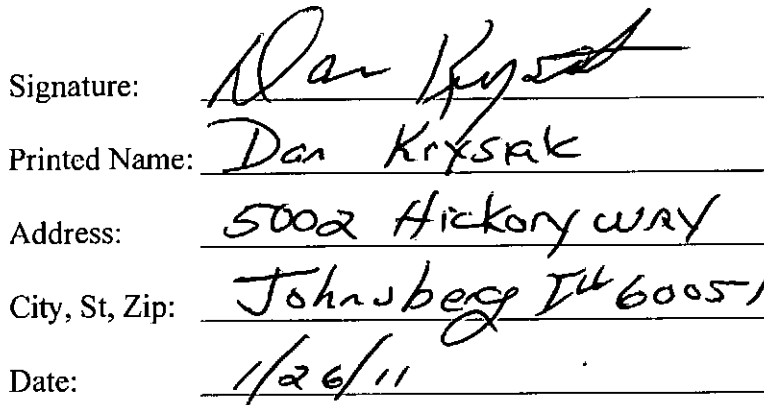 Signature: Dan Krysiak
Printed Name: Dan Krysiak
Address: 5002 Hickory WAY
City, St, Zip: Johnsberg Ill 60051
Date: 1/26/11